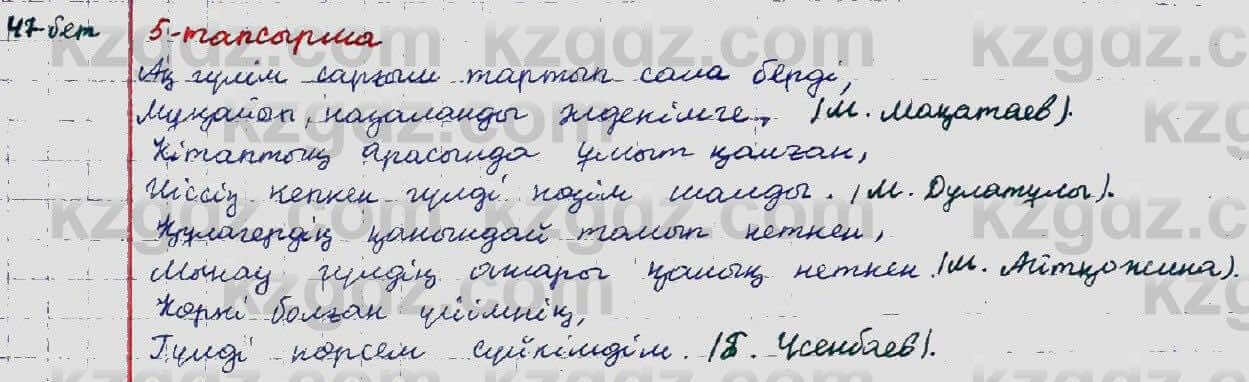 47-бет 5-тапсырма
Ақ гүлім сарғыш тартып сала берді,
Мұңайып,назаланды жүдегіміге, /М. Мақатаев).
Кітаптың арасында ұмыт қалған,
Иіссіз кепкен гүлді көзім шалды. /М. Дулатұлы).
Құлагердің қанындай тамып кеткен,
Мынау гүлдің ашары қалың неткен /М. Айтқожина).
Көркі болған үйімнің,
Гүлді көрсем сүйкімдім. /Б. Үсенбаев).